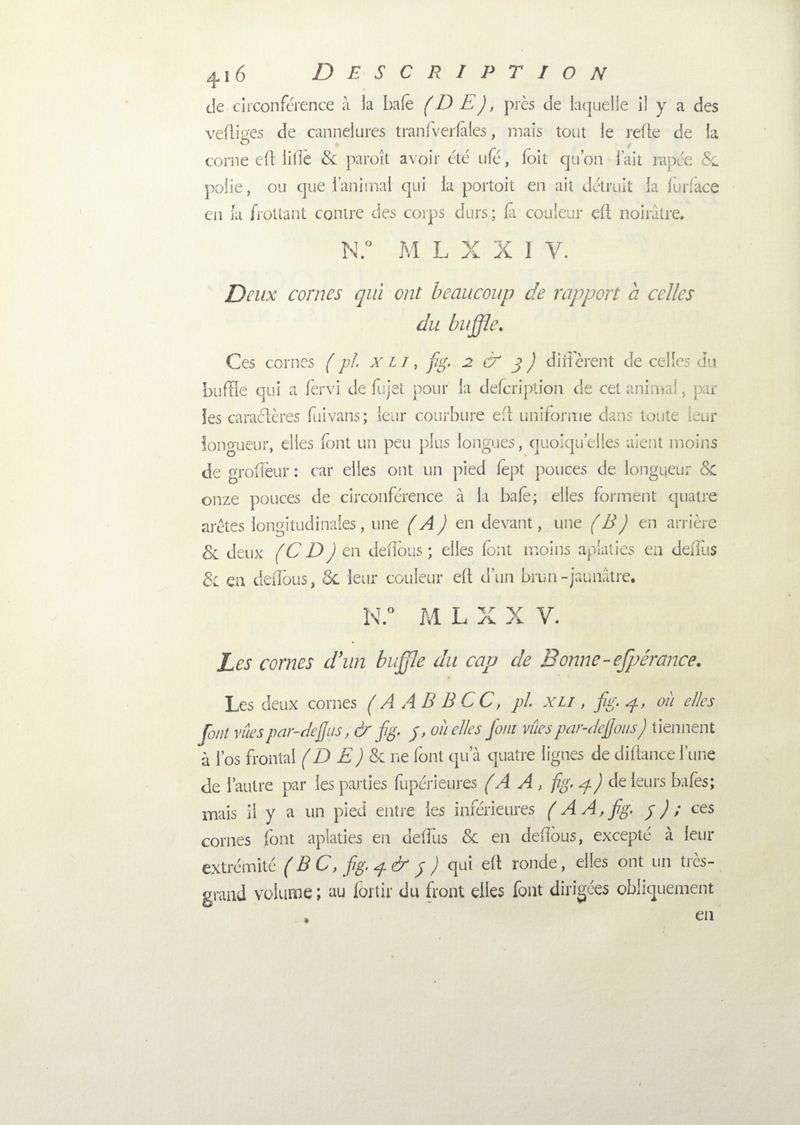 416 DESCRIPTION
de circonférence à la baſe (D E), près de laquelle il y a des
veſtiges de cannelures tranſverſales, mais tout le reſte de la
corne eſt liſſe & paroît avoir été uſé, ſoit qu'on l'ait rapée &
polie, ou que l'animal qui la portoit en ait détruit la ſurface
en la frottant contre des corps durs; ſa couleur eſt noirâtre.
N.° MLXXIV.
Deux cornes qui ont beaucoup de rapport à celles
du buffle.
Ces cornes (pl. XLI, fig. 2 & 3) diffèrent de celles du
buffle qui a ſervi de ſujet pour la deſcription de cet animal, par
les caractères ſuivans; leur courbure eſt uniforme dans toute leur
longueur, elles ſont un peu plus longues, quoiqu'elles aient moins
de groſſeur: car elles ont un pied ſept pouces de longueur &
onze pouces de circonférence à la baſe; elles forment quatre
arêtes longitudinales, une (A) en devant, une (B) en arrière
& deux (C D) en deſſous; elles ſont moins aplaties en deſſus
& en deſſous, & leur couleur eſt d'un brun-jaunâtre.
N.° MLXXV.
Les cornes d'un buffle du cap de Bonne-eſpérance.
Les deux cornes (A A B B C C, pl. XLI, fig. 4, où elles
ſont vûes par-deſſus, & fig. 5, où elles ſont vûes par-deſſous) tiennent
à l'os frontal (D E) & ne ſont qu'à quatre lignes de diſtance l'une
de l'autre par les parties ſupérieures (A A, fig. 4) de leurs baſes;
mais il y a un pied entre les inférieures (A A, fig. 5); ces
cornes ſont aplaties en deſſus & en deſſous, excepté à leur
extrémité (B C, fig. 4 & 5) qui eſt ronde, elles ont un très-
grand volume; au ſortir du front elles ſont dirigées obliquement
en